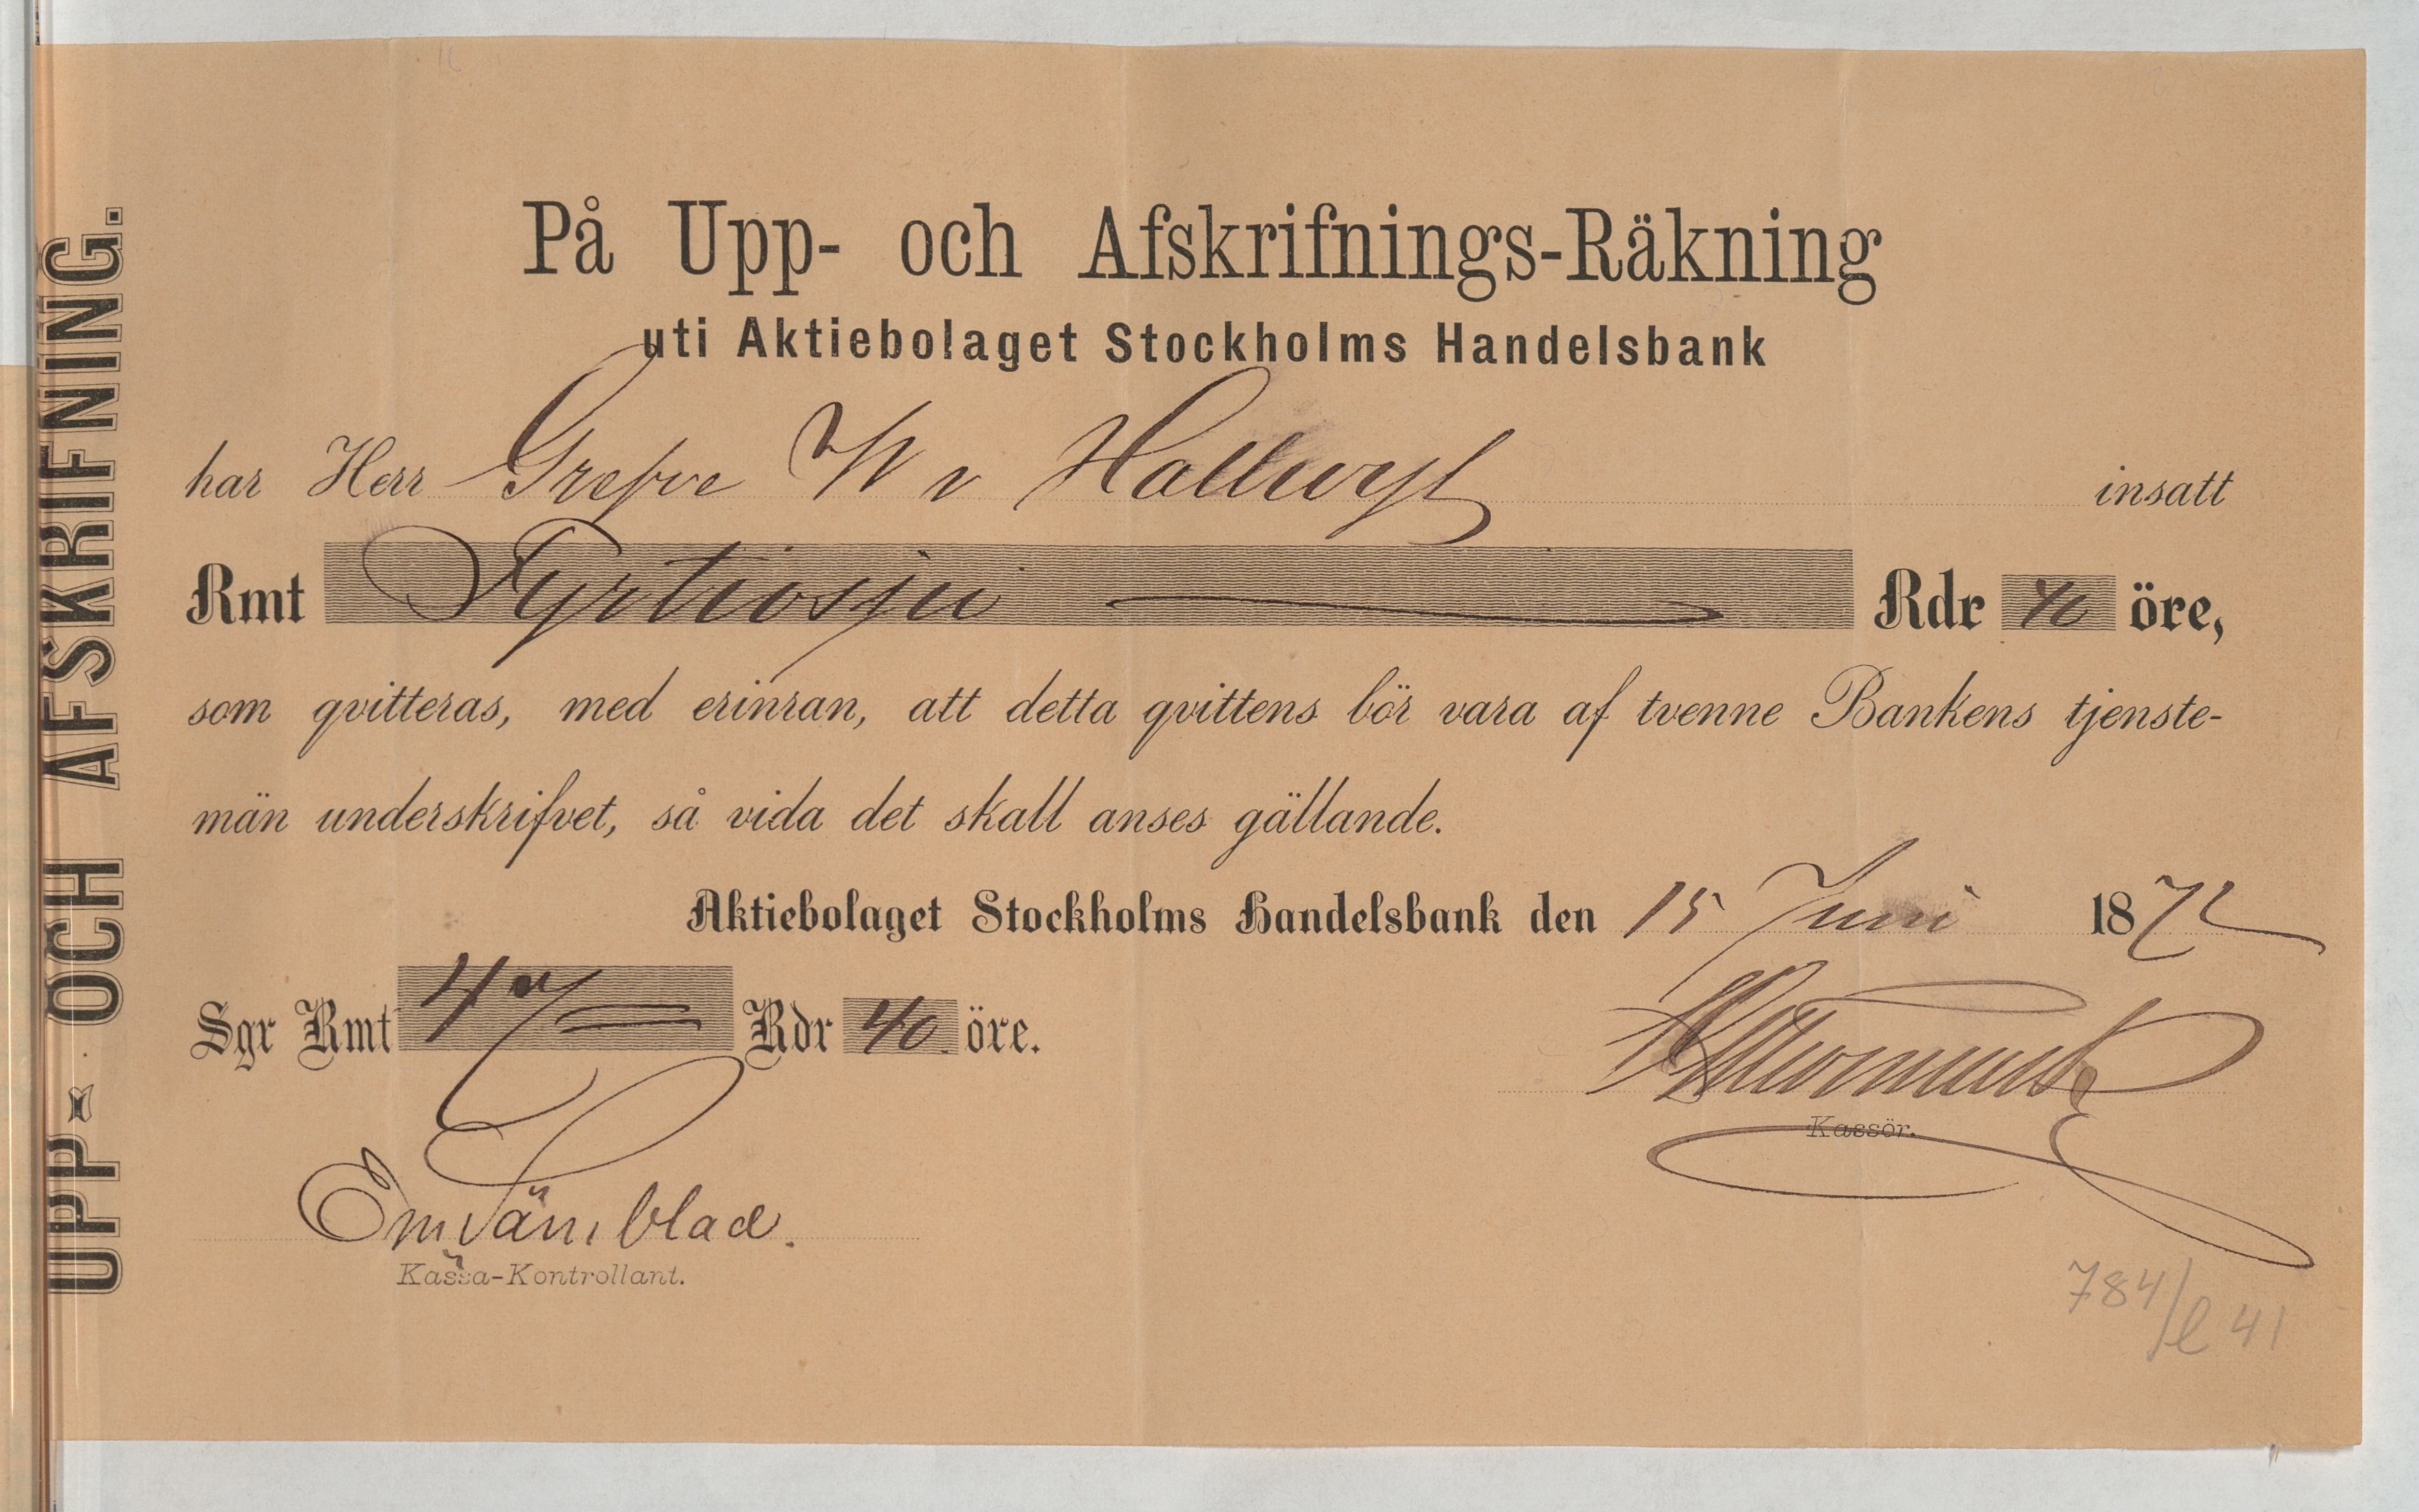 UPP- OCH AFSKRIFNING.
På Upp- och Afskrifnings-Räkning
uti Aktiebolaget Stockholms Handelsbank
har Herr Grefve W v Hallwyl insatt
Rmt Fyrtiosju Rdr 40 öre,
som qvitteras, med erinran, att detta qvittens bör vara af tvenne Bankens tjenste-
män underskrifvet, så vida det skall anses gällande.
Aktiebolaget Stockholms Handelsbank den 15 Juni 1872
Sgr Rmt 47 Rdr 40 öre.
Kassör.
Kassa-Kontrollant.
784/l 41